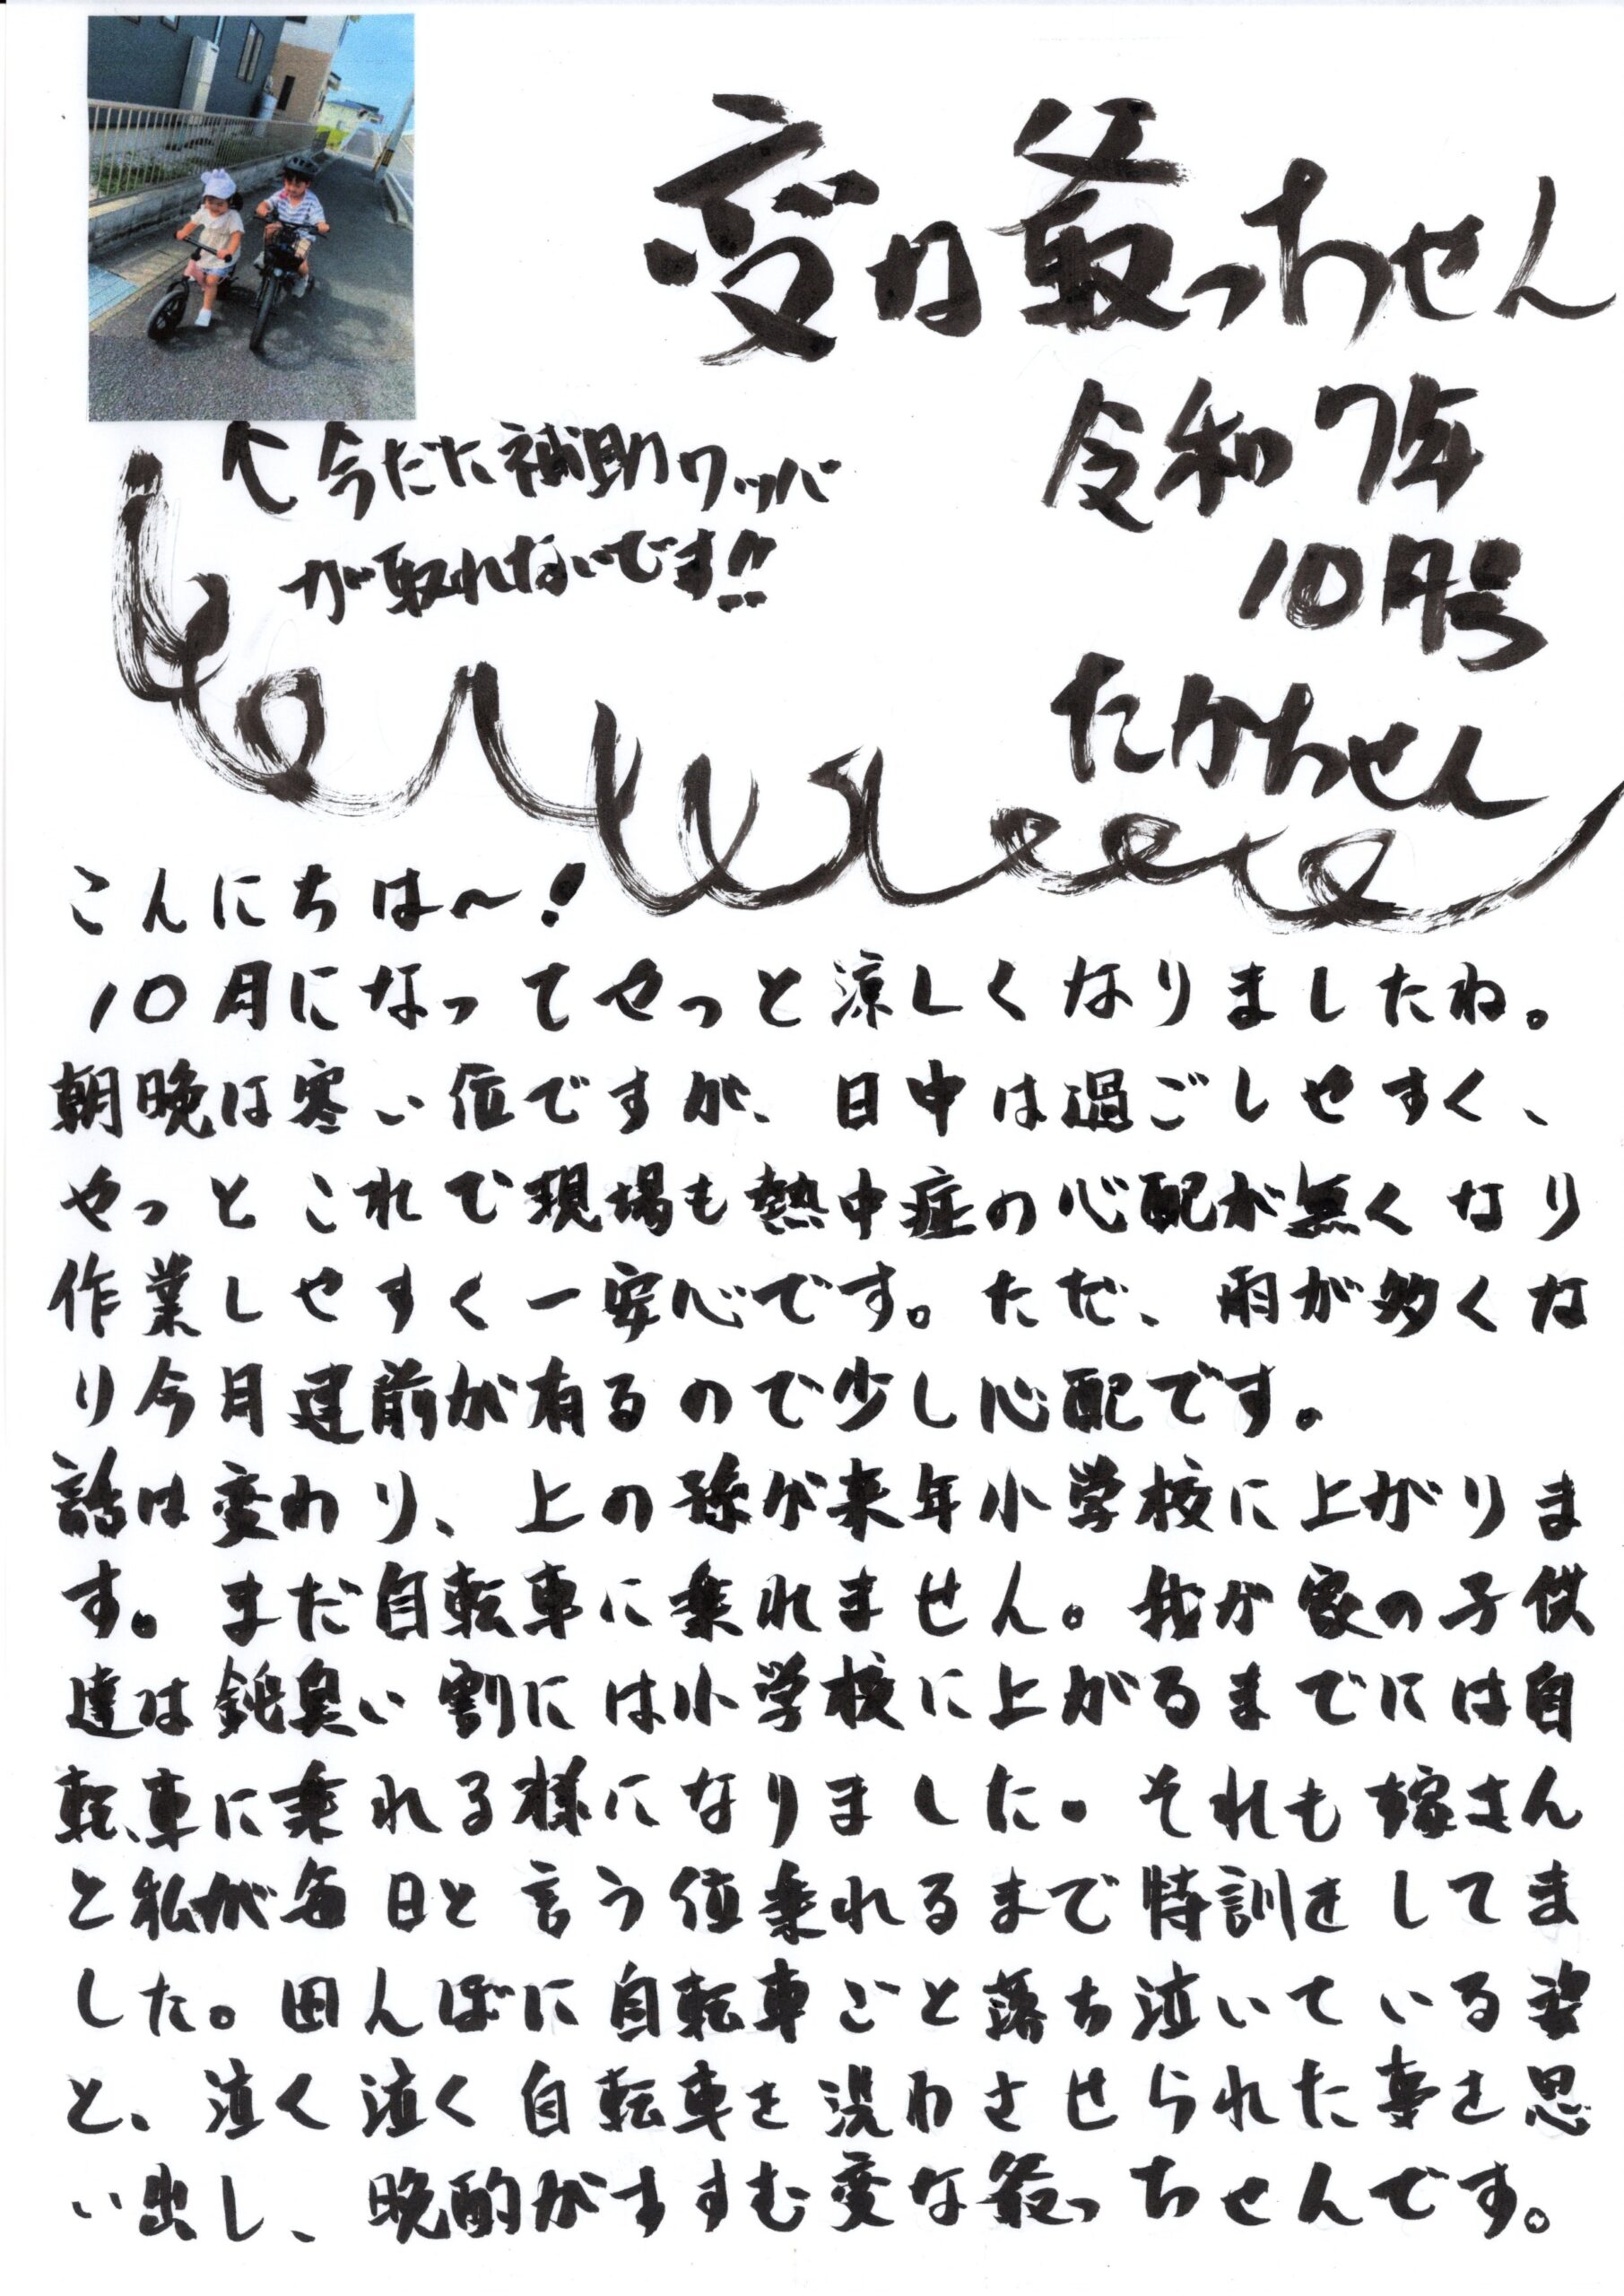 変な爺っちゃん
令和7年
10月号
たかちゃん
今だに補助ワッパ
が取れないです!!
こんにちは〜!
10月になってやっと涼しくなりましたね。
朝晩は寒い位ですが、日中は過ごしやすく、
やっとこれで現場も熱中症の心配が無くなり
作業しやすく一安心です。ただ、雨が多くな
り今月建前が有るので少し心配です。
話は変わり、上の孫が来年小学校に上がりま
す。まだ自転車に乗れません。我が家の子供
達は鈍臭い割には小学校に上がるまでには自
転車に乗れる様になりました。それも嫁さん
と私が毎日と言う位乗れるまで特訓をしてま
した。田んぼに自転車ごと落ち泣いている姿
と、泣く泣く自転車を洗わさせられた事を思
い出し、晩酌がすすむ変な爺っちゃんです。